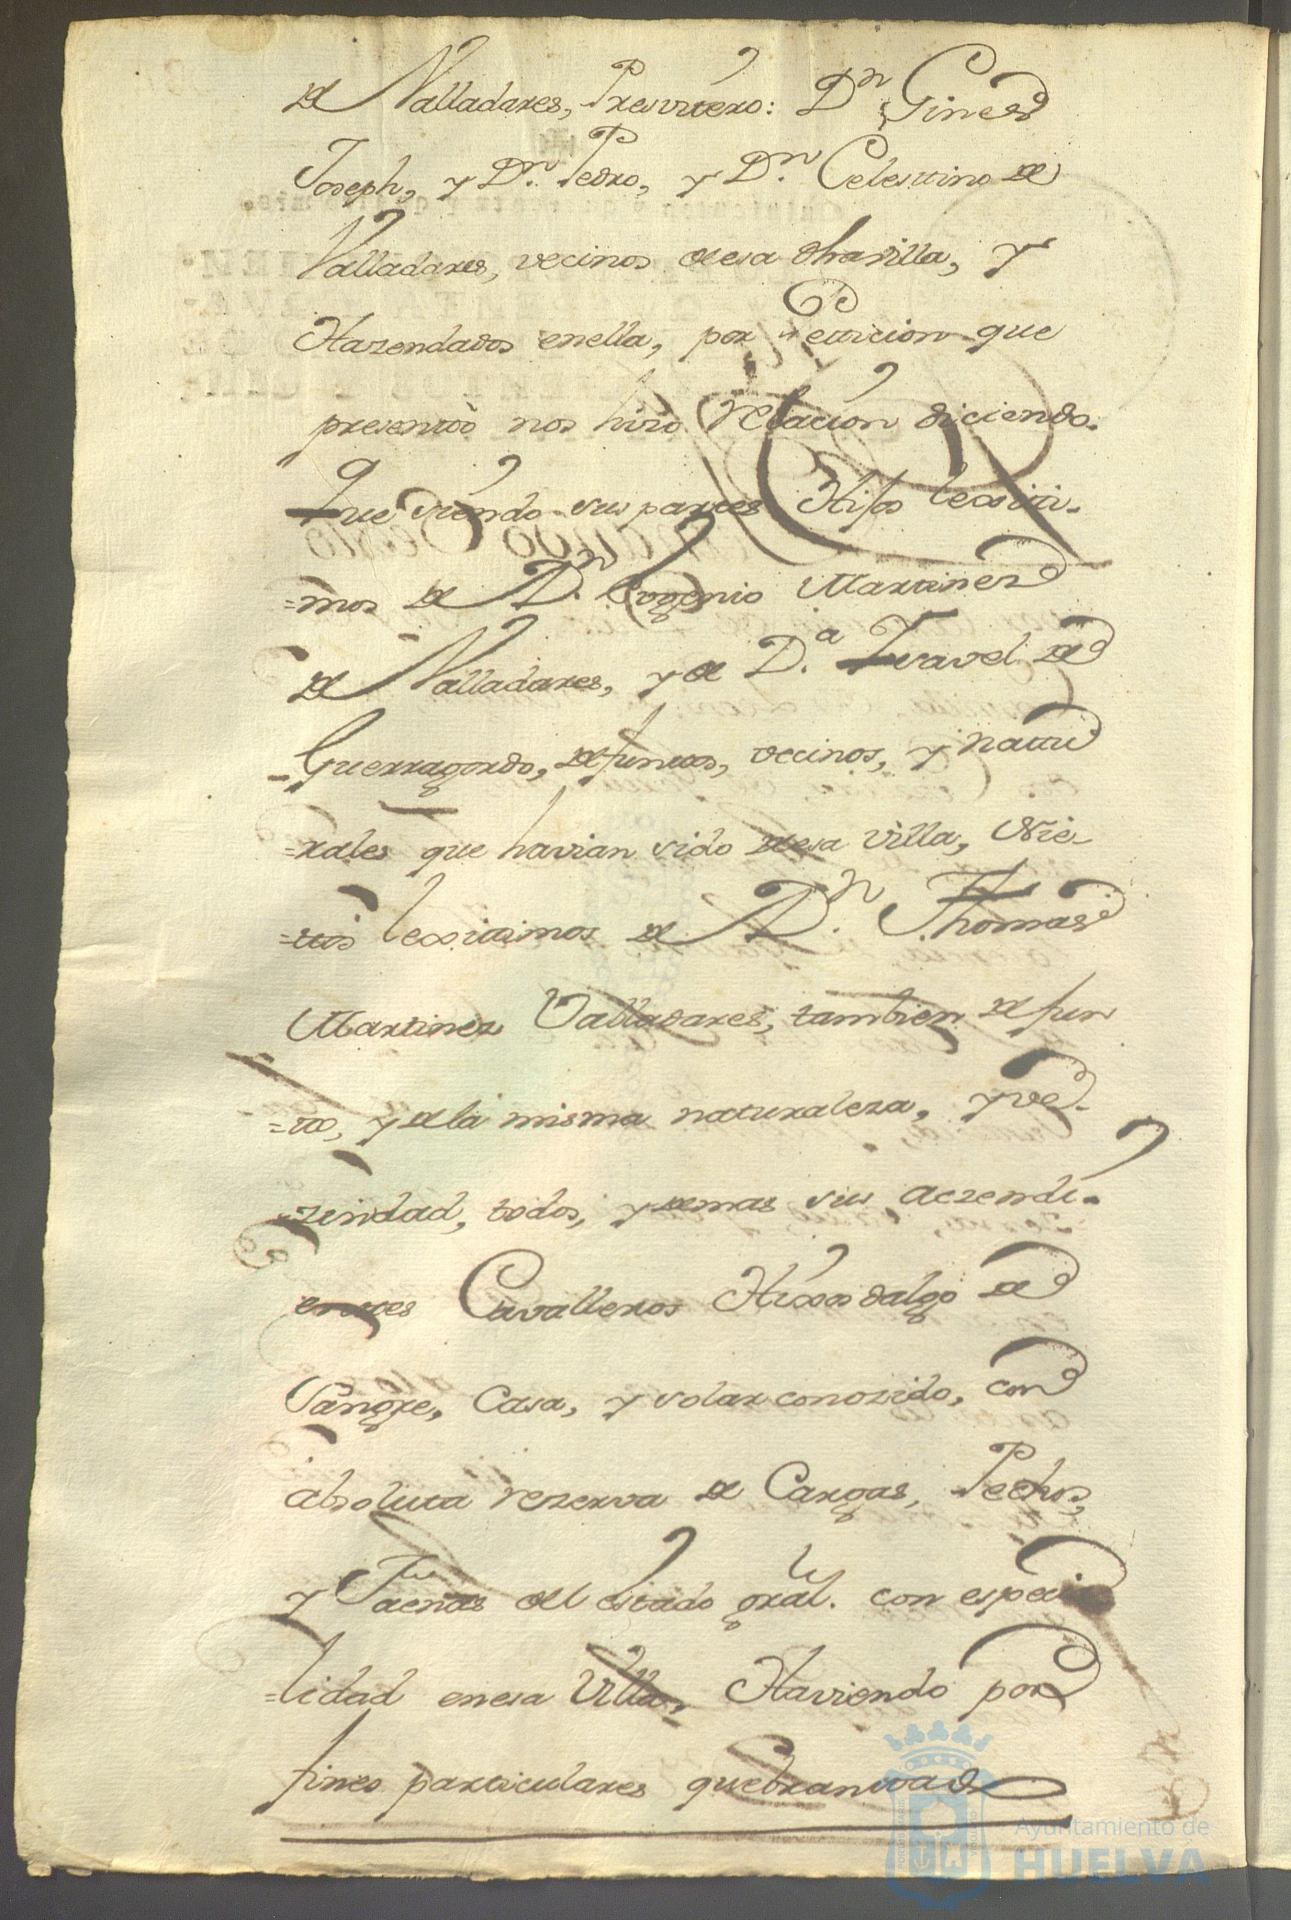 de Valladares, Presvitero: Dn Gines
Joseph, y Dn. Pedro, y Dn. Celestino de
Valladares, vecinos de esa dha villa, y
Hazendados enella, por Peticion que
presentò nos hizo relacion diciendo.
Que siendo sus partes Hijos lexiti-
=mos de Dn. Eugenio Martinez
de Valladares, y de D.a Isavel de
Guerragordo, defuntos, vecinos, y natu
=rales que havian sido de esa villa, Nie-
=tos lexitimos de Dn. Thomas
Martinez Valladares, tambien defun
=to, y dela misma naturaleza, y ve-
=zindad, todos, y demas sus aczendi-
entes Cavalleros Hixosdalgo de
Sangre, Casa, y solar conozido, con
absoluta rezerva de Cargas, Pechos,
y Faenas del estado gral. con especia
=lidad enesa Villa, Haviendo por
fines particulares quebrantado
Ayuntamiento de
HUELVA